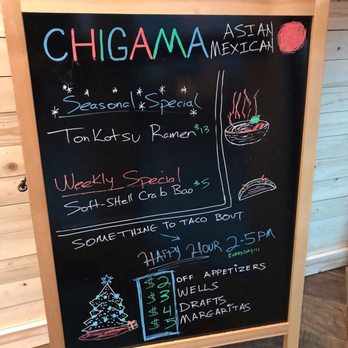 CHIGAMA ASIAN MEXICAN
Seasonal Special
TonKotsu Ramen $13
Weekly Special
Soft-Shell Crab Bao $5
SOMETHING TO TACO BOUT
HAPPY HOUR 2-5PM
EVERYDAY!!!
$2 OFF APPETIZERS
$3 WELLS
$4 DRAFTS
$5 MARGARITAS